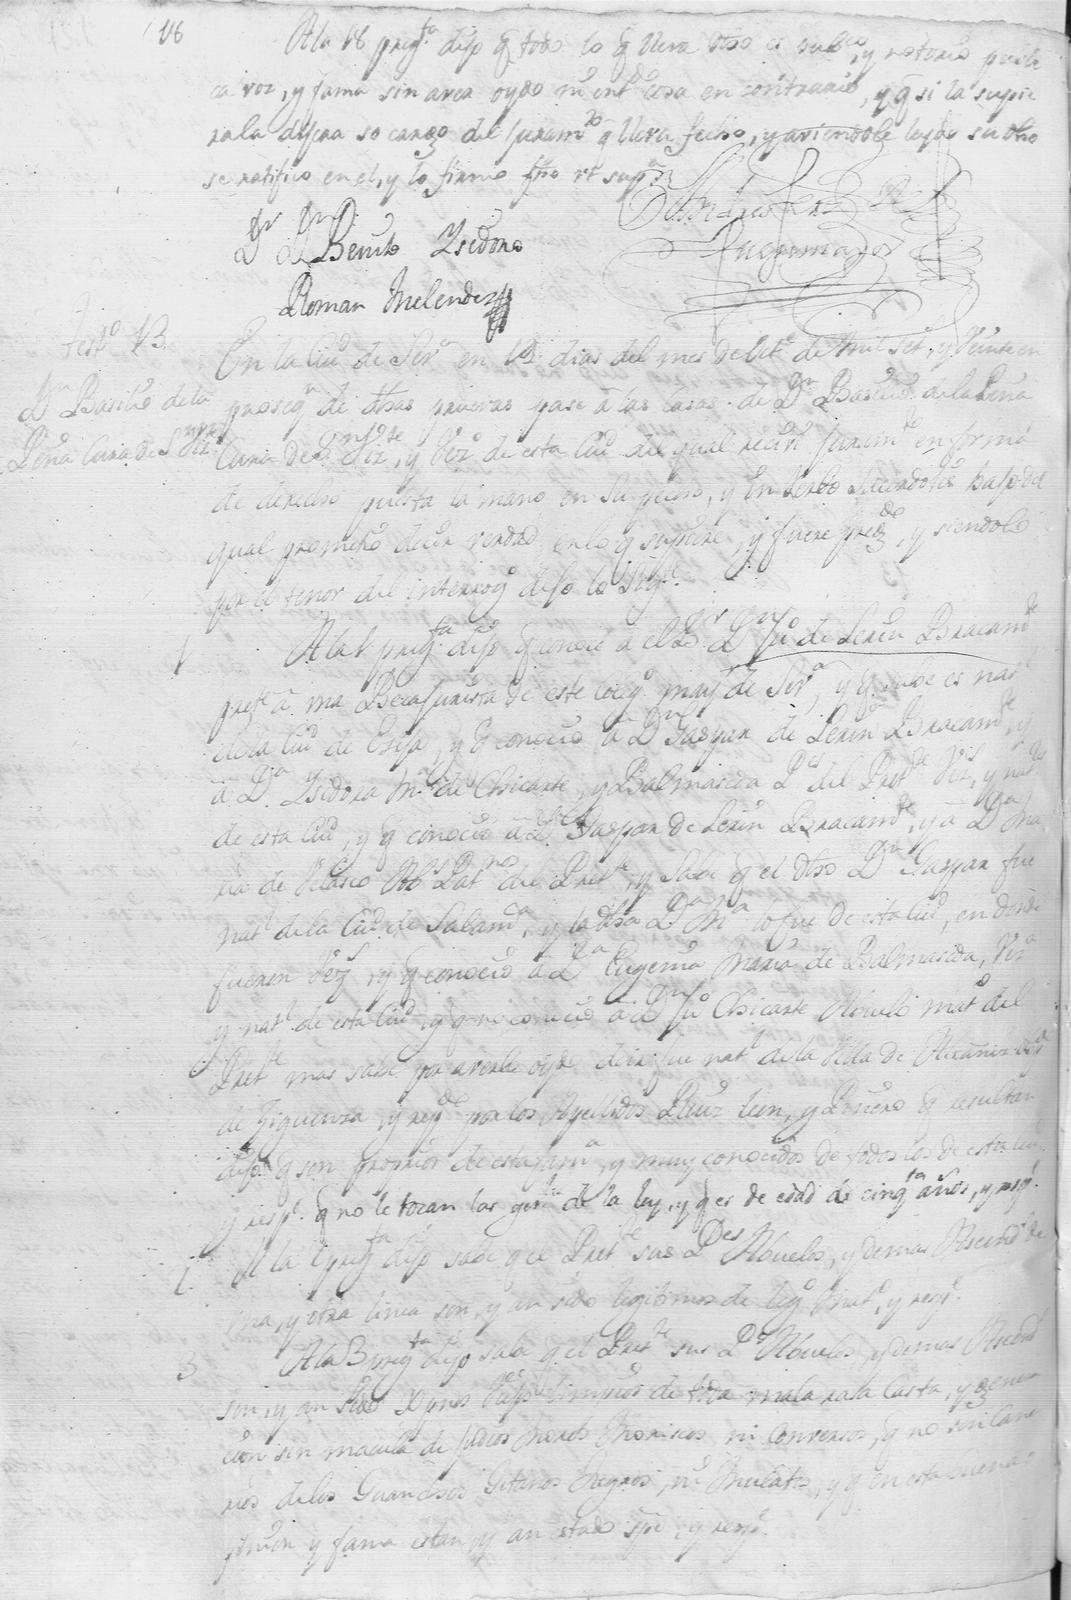 18 A la 18 preg.ta dijo q todo lo q lleva dho es publico, y notorio publi
ca voz, y fama sin aver oydo ni ent.do cosa en contrario, y q si la supie
ra la dijera so cargo del juram.to q lleva fecho, y aviendole leydo su dho
se ratifico en el, y lo firmo fho ut sup.a
D.r D.n Benito Ysidoro
Roman Melendez
Andres Fern.z de
Test.o 13.
D.n Basilio de la
Peña Cura de S.
En la Ciu.d de Sev.a en 13 dias del mes de de Mil Set. y Veinte en
proseq.n de dhas pruevas pase a las casas de D.n Basilio de la Peña
Cura de S. Viz.te, y Vez.o de esta Ciu.d del qual recivi juram.to en forma
de derecho puesta la mano en su pecho, y In Verbo Sacerdotis bajo del
qual prometio decir verdad en lo q supiere, y fuere preg.do, y siendolo
por el tenor del interrog.o dijo lo sig.te
1 A la 1 preg.ta dijo q conoce a el D.r D.n Ju.o de Lerin Bracam.te
pret.te a una Beca Jurista de este Coleg.o may.r de Sev.a, y q sabe es nat.l
de la Ciu.d de Ecija, y q conocio a D.n Gaspar de Lerin Bracam.te, y
a D.a Ysidora M.a de Chicarte, y Balmaseda P.es del Pret.te Vez.s, y nat.les
de esta Ciu.d, y q conocio a D.n Gaspar de Lerin Bracam.te, y a D.a Ma
ria de Velasco Ab.s Pat.nos del Pret.te, y sabe q el dho D.n Gaspar fue
nat.l de la Ciu.d de Salam.ca, y la dha D.a M.a lo fue de esta Ciu.d, en donde
fueron Vez.s, y q conocio a D.a Eugenia Maria de Balmaseda, Vez.a
y nat.l de esta Ciu.d, y q no conocio a D.n Ju.o Chicarte Abuelo mat.o del
Pret.te mas save por averlo oydo decir fue nat.l de la Villa de
de Siguenza, y preg.do por los Apellidos q resultan
dijo q son propios de esta fam.a, y muy conocidos de todos los de esta Ciu.d
y resp.e q no le tocan las gen.les de la ley, y q es de edad de cinq.ta años, y resp.e
2 A la 2 preg.ta dijo sabe q el Pret.te sus P.es Abuelos, y demas Ascend.tes de
una, y otra linea son, y an sido legitimos de leg.o Mat.o, y resp.e
3 A la 3 preg.ta dijo sabe q el Pret.te sus P.es Abuelos, y demas Ascend.tes
son, y an sido Xpnos Viejos limpios de toda mala raza Casta, y genera
cion sin macula de Judios Moros Moriscos, ni Conversos, q no son Cana
rios de los Guanchos Gitanos Negros, ni Mulatos, y q en esta buena o
pinion y fama estan, y an estado sp.re, y resp.e